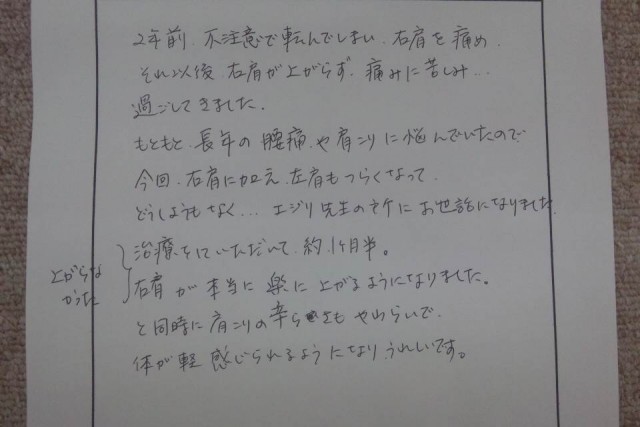 2年前、不注意で転んでしまい、右肩を痛め、
それ以後 右肩が上がらず、痛みに苦しみ…
過ごしてきました。
もともと、長年の腰痛や肩こりに悩んでいたので
今回、右肩に加え、左肩もつらくなって、
どうしようもなく… エジリ先生の所にお世話になりました
治療をしていただいて、約1ヶ月半。
上がらな
かった
右肩が本当に楽に上がるようになりました。
と同時に肩こりの辛らさもやわらいで、
体が軽感じられるようになり、うれしいです。